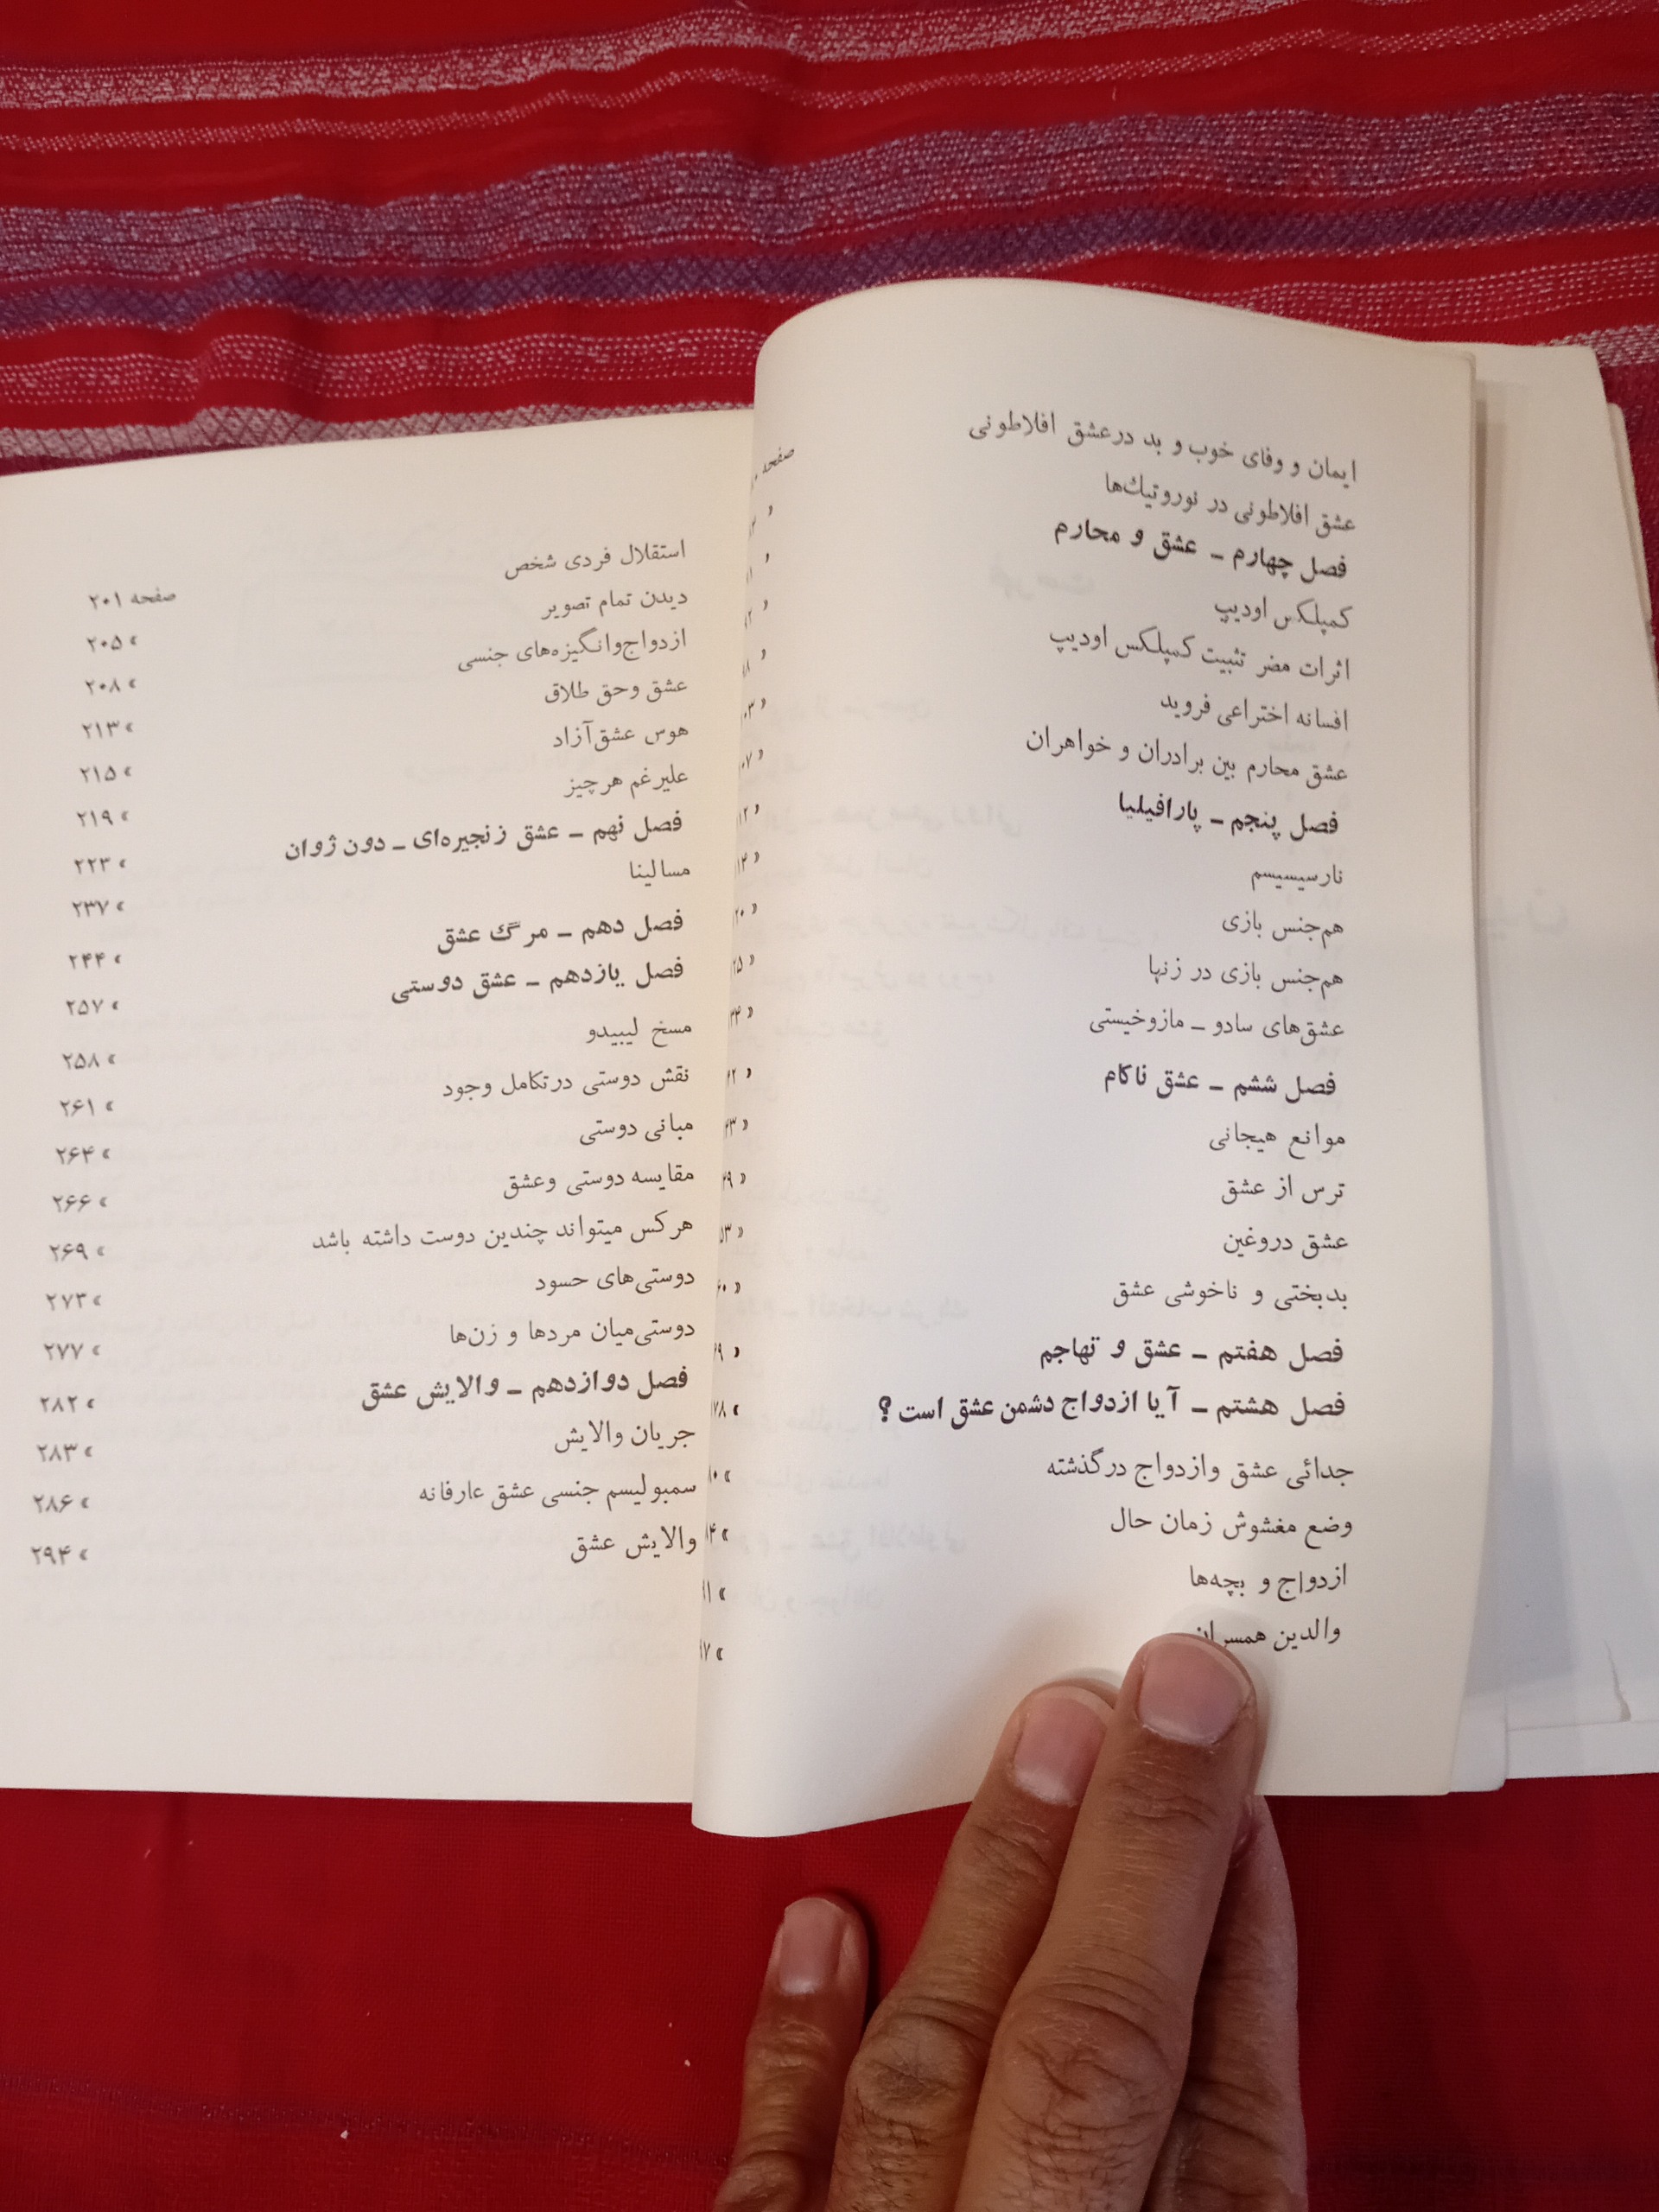 ایمان و وفای خوب و بد درعشق افلاطونی صفحه
عشق افلاطونی در نوروتیك‌ها
فصل چهارم ــ عشق و محارم
کمپلکس اودیپ
اثرات مضر تثبیت کمپلکس اودیپ
افسانه اختراعی فروید
عشق محارم بین برادران و خواهران
فصل پنجم ــ پارافیلیا
نارسیسیسم
هم‌جنس بازی
هم‌جنس بازی در زنها
عشق‌های سادو ــ مازوخیستی
فصل ششم ــ عشق ناکام
موانع هیجانی
ترس از عشق
عشق دروغین
بدبختی و ناخوشی عشق
فصل هفتم ــ عشق و تهاجم
فصل هشتم ــ آیا ازدواج دشمن عشق است ؟
جدائی عشق وازدواج درگذشته
وضع مغشوش زمان حال
ازدواج و بچه‌ها
والدین همسران
استقلال فردی شخص صفحه ۲۰۱
دیدن تمام تصویر » ۲۰۵
ازدواج‌وانگیزه‌های جنسی » ۲۰۸
عشق وحق طلاق » ۲۱۳
هوس عشق‌آزاد » ۲۱۵
علیرغم هرچیز » ۲۱۹
فصل نهم ــ عشق زنجیره‌ای ــ دون ژوان » ۲۲۳
مسالینا » ۲۳۷
فصل دهم ــ مرگ عشق » ۲۴۴
فصل یازدهم ــ عشق دوستی » ۲۵۷
مسخ لیبیدو » ۲۵۸
نقش دوستی درتکامل وجود » ۲۶۱
مبانی دوستی » ۲۶۴
مقایسه دوستی وعشق » ۲۶۶
هرکس میتواند چندین دوست داشته باشد » ۲۶۹
دوستی‌های حسود » ۲۷۳
دوستی‌میان مردها و زن‌ها » ۲۷۷
فصل دوازدهم ــ والایش عشق » ۲۸۲
جریان والایش » ۲۸۳
سمبولیسم جنسی عشق عارفانه » ۲۸۶
والایش عشق » ۲۹۴